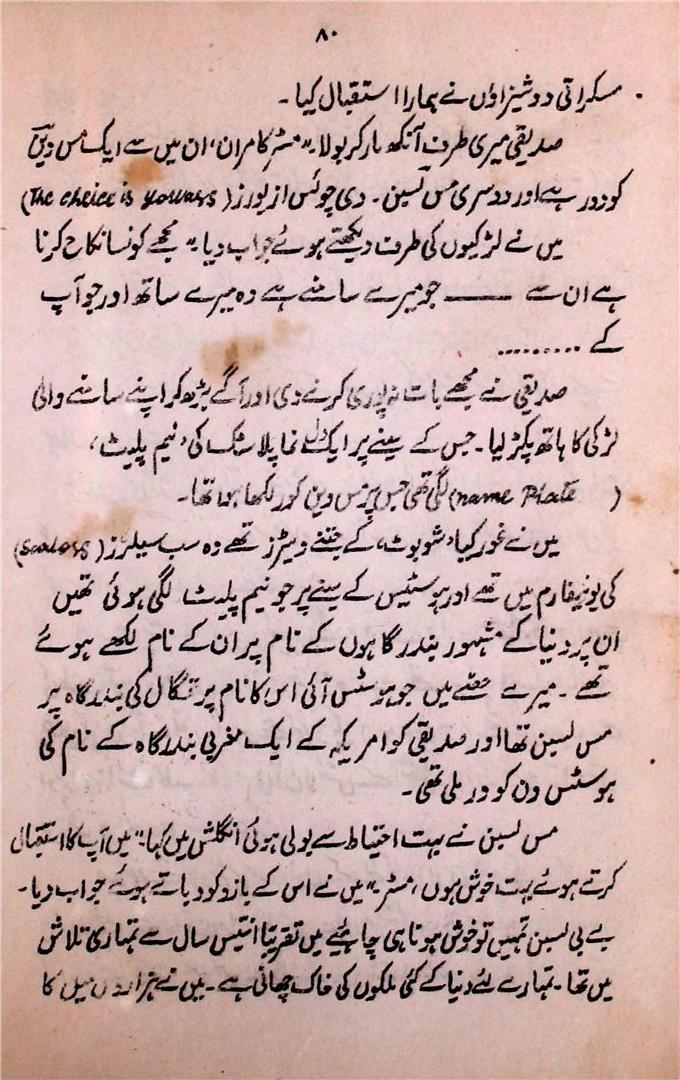 ۸۰
مسکراتی دوشیزاؤں نے ہمارا استقبال کیا۔
صدیقی میری طرف آنکھ مار کر بولا۔ "مسٹر کامران، ان میں سے ایک مس وین
کوور ہے اور دوسری مس لسین۔ دی چوئس از یورز (The choice is youars)
میں نے لڑکیوں کی طرف دیکھتے ہوئے جواب دیا۔" مجھے کونسا نکاح کرنا
ہے ان سے ــــــ جو میرے سامنے ہے وہ میرے ساتھ اور جو آپ
کے .........
صدیقی نے مجھے بات نہ پوری کرنے دی اور آگے بڑھ کر اپنے سامنے والی
لڑکی کا ہاتھ پکڑ لیا۔ جس کے سینے پر ایک نما پلاسٹک کی 'نیم پلیٹ،
(name Plate) لگی تھی جس پر مس وین کوور لکھا ہوا تھا۔
میں نے غور کیا 'شو بوٹ، کے جتنے ویٹرز تھے وہ سب سیلرز (Sealors)
کی یونیفارم میں تھے اور ہوسٹیس کے سینے پر جو نیم پلیٹ لگی ہوئی تھیں
ان پر دنیا کے مشہور بندرگاہوں کے نام پر ان کے نام لکھے ہوئے
تھے۔ میرے حصّے میں جو ہوسٹس آئی اس کا نام پرتگال کی بندرگاہ پر
مس لسین تھا اور صدیقی کو امریکہ کے ایک مغربی بندرگاہ کے نام کی
ہوسٹس ون کوور ملی تھی۔
مس لسین نے بہت احتیاط سے بولی ہوئی انگلش میں کہا۔" میں آپ کا استقبال
کرتے ہوئے بہت خوش ہوں، مسٹر۔" میں نے اس کے بازو کو دباتے ہوئے جواب دیا۔
بے بی لسین تمہیں تو خوش ہونا ہی چاہیئے میں تقریباً انتیس سال سے تمہاری تلاش
میں تھا۔ تمہارے لئے دنیا کے کئی ملکوں کی خاک چھانی ہے۔ میں نے ہزاروں میل کا